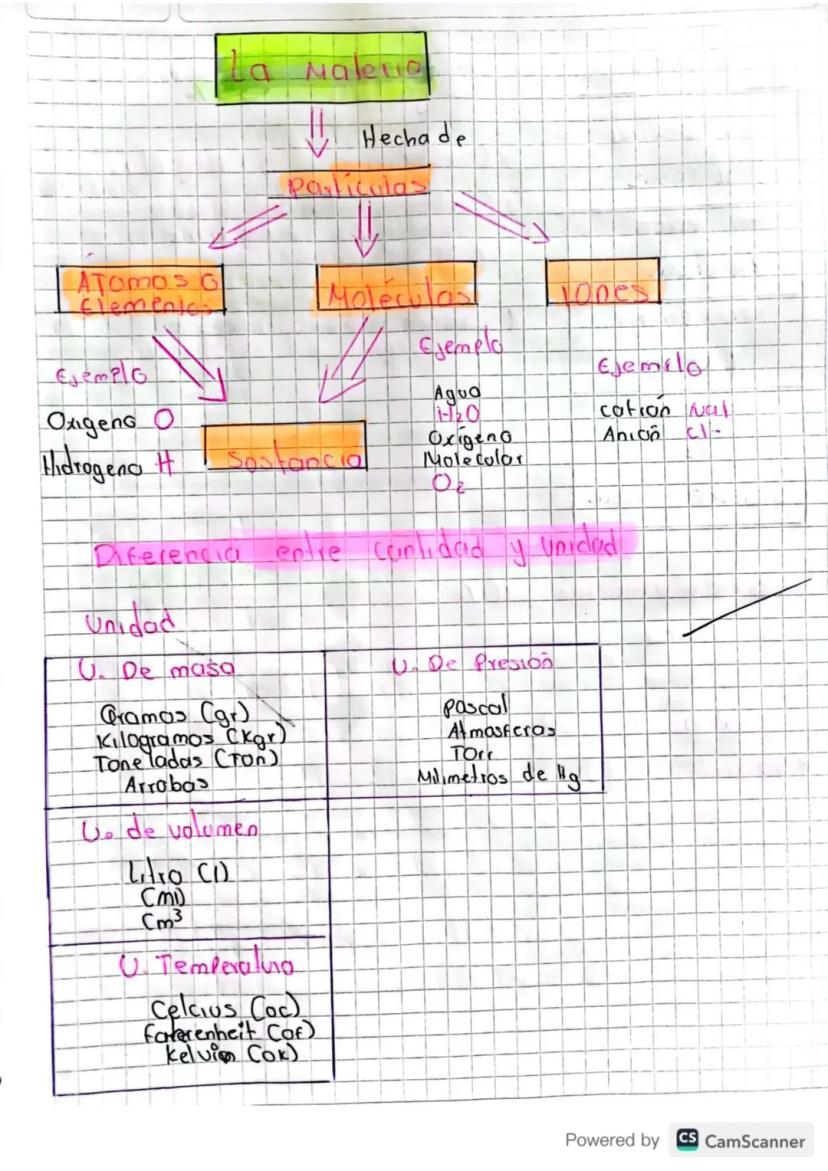 La Materia
Hecha de
Partículas
ÁTomos O
Elementos
Moléculas
iones
Ejemplo
Oxigeno O
Hidrogeno H
Sustancia
Ejemplo
Agua
H2O
Oxígeno
Molecular
O2
Ejemplo
catión Na+
Anión Cl-
Diferencia entre cantidad y unidad
Unidad
U. De masa
Gramos (gr)
Kilogramos (Kgr)
Toneladas (Ton)
Arrobas
U. De Presión
Pascal
Atmosferas
Torr
Milimetros de Hg
U. de volumen
Litro (l)
(ml)
Cm³
U. Temperatura
Celcius (oc)
Faherenheit (of)
Kelvin (ok)
Powered by CS CamScanner